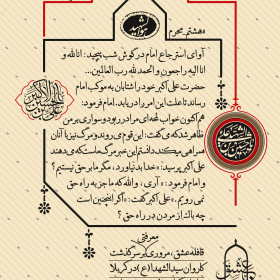 هشتم محرم
آوای استرجاع امام در گوش شب پیچید: انا لله و
انا الیه راجعون و الحمد لله رب العالمین...
حضرت علی اکبر خود را شتابان به موکب امام
رساند تا علت این امر را دریابد. امام فرمود:
هم اکنون خواب لمحه‌ای مرا در ربود و سواری بر من
ظاهر شد که می‌گفت: این قوم می‌روند و مرگ نیز با آنان
همراهی می‌کند. دانستم این خبر مرگ ماست که می‌دهند
علی اکبر پرسید: «خدا بد نیاورد، مگر ما بر حق نیستیم؟
و امام فرمود: « آری، والله که ما جز به راه حق
نمی رویم. » علی اکبر گفت: «اگر اینچنین است
چه باک از مردن در راه حق؟
معرفی
قافله عشق، مروری بر سرگذشت
کاروان سیدالشهدا (ع) در کربلا